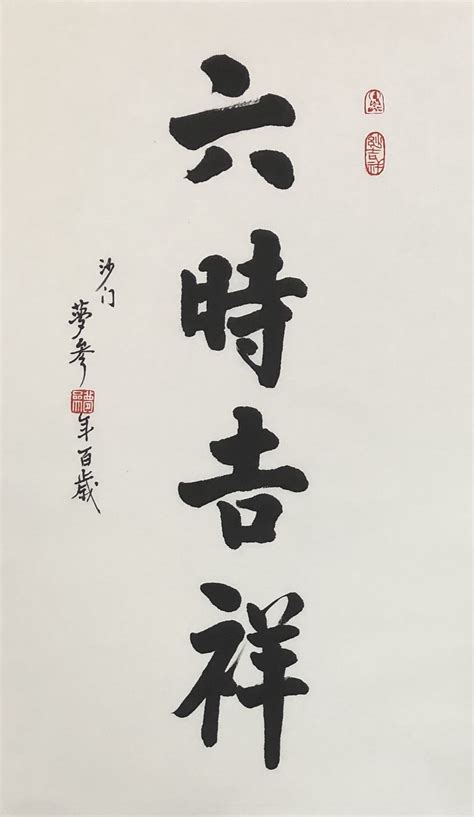 六時吉祥
沙门
夢參
年百歲